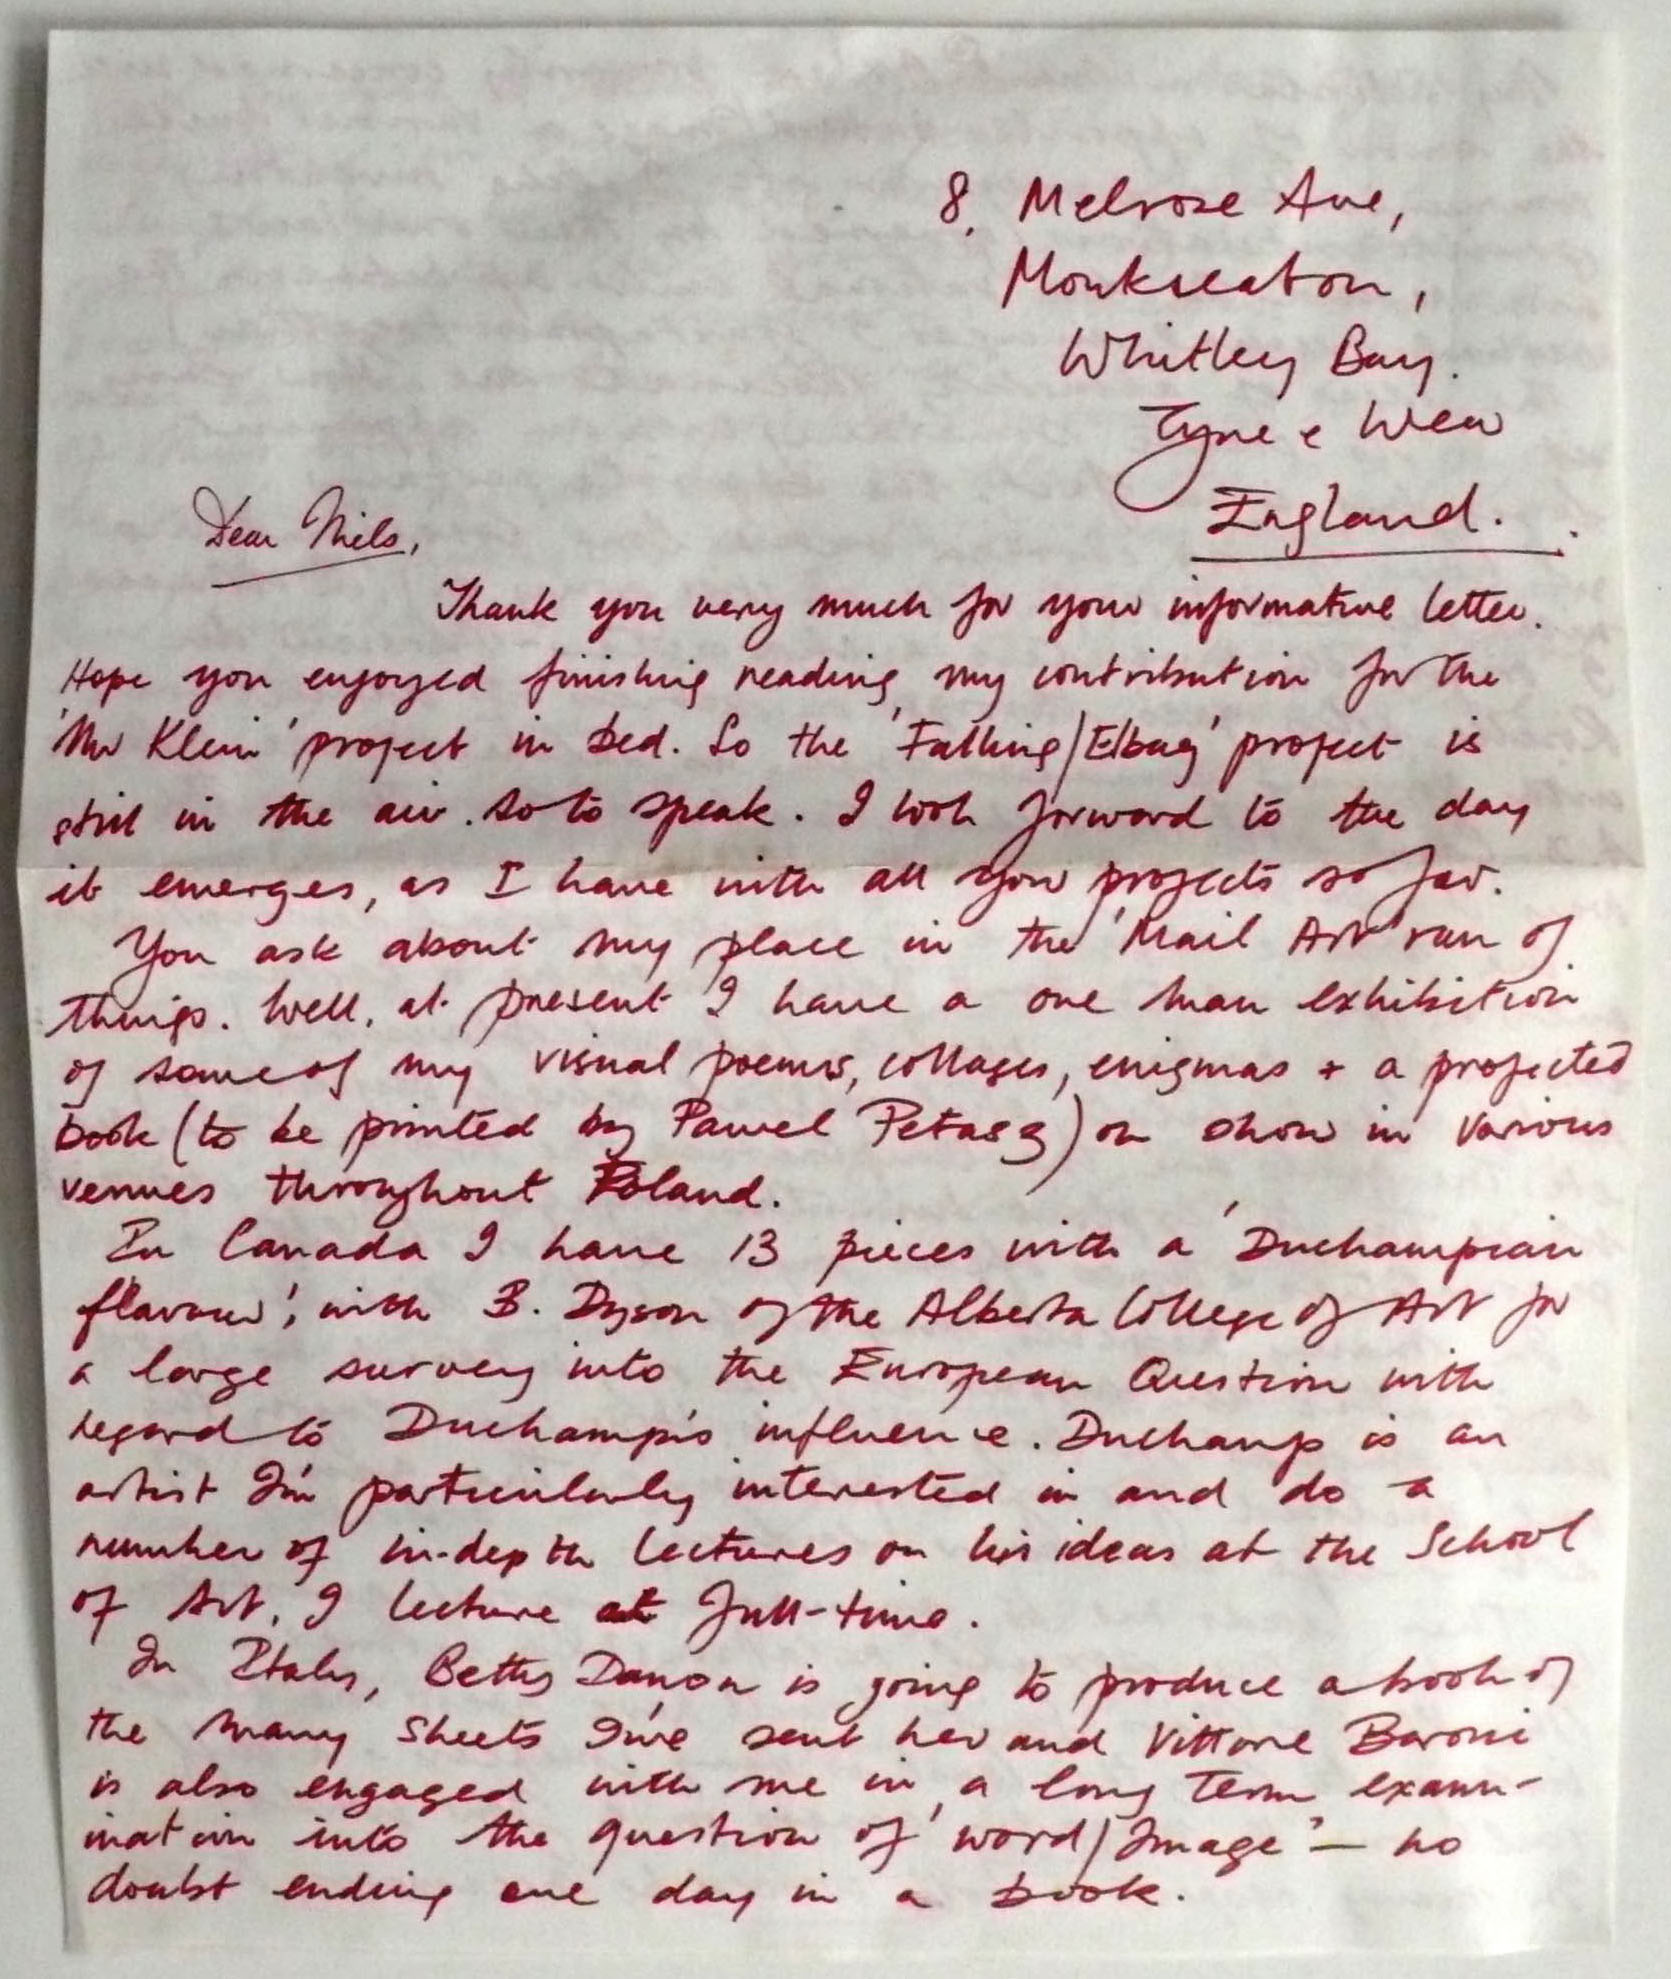 8, Melrose Ave,
Monkseaton,
Whitley Bay.
Tyne & Wear
England.
Dear Niels,
Thank you very much for your informative letter.
Hope you enjoyed finishing reading my contribution for the
'Mr Klein' project in bed. So the 'Falling/Elbag' project is
still in the air. so to speak. I look forward to the day
it emerges, as I have with all your projects so far.
You ask about my place in the 'Mail Art' run of
things. Well, at present I have a one man exhibition
of some of my visual poems, collages, enigmas + a projected
book (to be printed by Pawel Petasz) on show in various
venues throughout Poland.
In Canada I have 13 pieces with a 'Duchampian
flavour', with B. Dyson of the Alberta College of Art for
a large survey into the European Question with
regard to Duchamp's influence. Duchamp is an
artist I'm particularly interested in and do a
number of in-depth lectures on his ideas at the School
of Art, I lecture at full-time.
In Italy, Betty Danon is going to produce a book of
the many sheets I've sent her and Vittore Baroni
is also engaged with me in a long term exam-
ination into the question of 'word/Image' — no
doubt ending one day in a book.